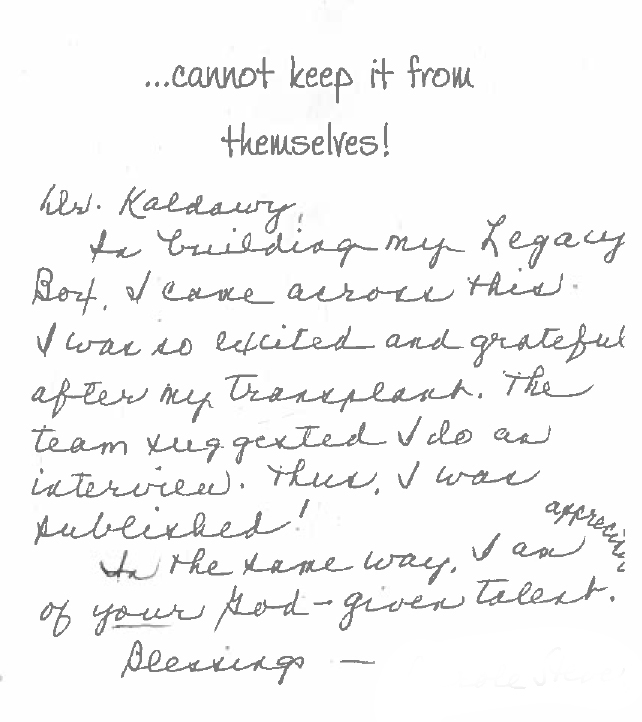 ...cannot keep it from
themselves!
Dr. Kaldawy,
In building my Legacy
Box, I came across this.
I was so excited and grateful
after my transplant. The
team suggested I do an
interview. Thus, I was
published!
In the same way, I am
of your God-given talent.
Blessings —